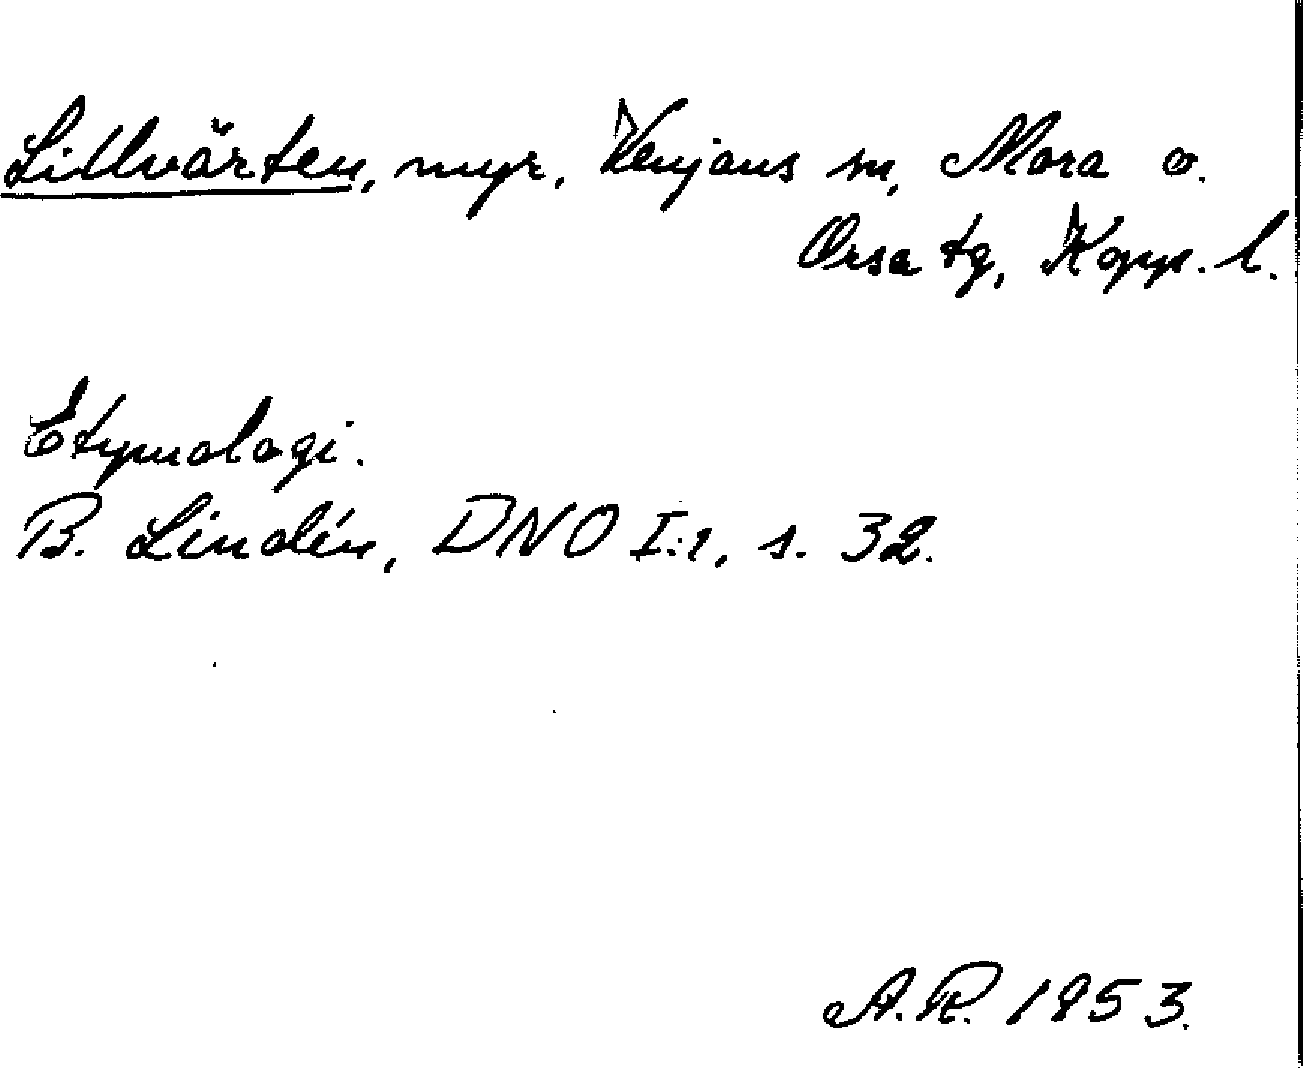 Lillvärten, myr, Venjans sn, Mora o.
Orsa tg, Kopp. l.
Etymologi.
B. Lindén, DNO I:1, s. 32.
A.R. 1953.